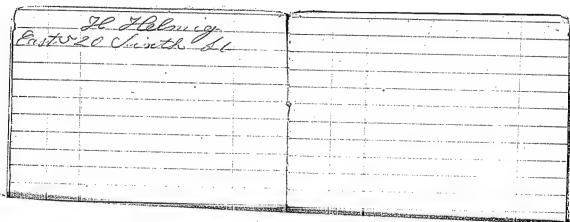 H Helmig
East 20 Ninth St